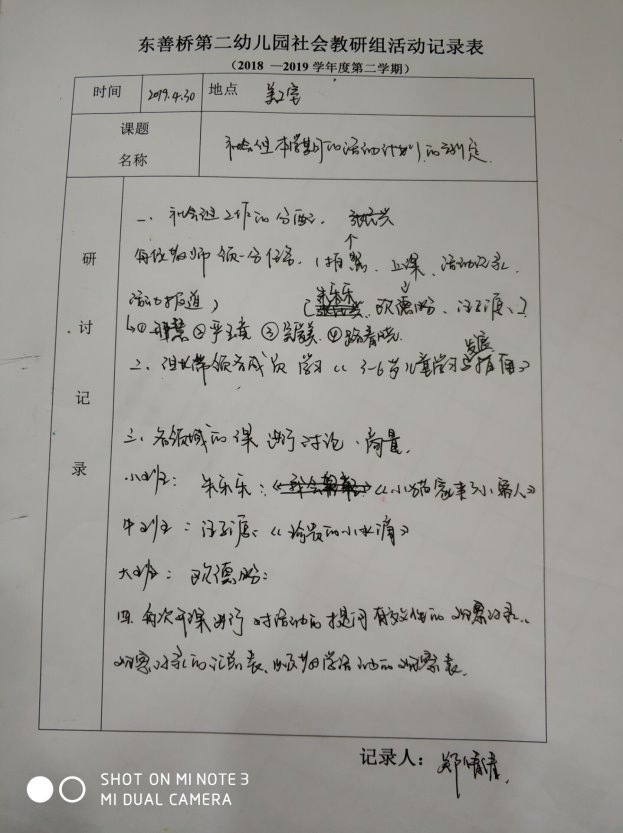 东善桥第二幼儿园社会教研组活动记录表
（2018 —2019 学年度第二学期）
时间 2019.4.30 地点 美工室
课题
名称
社会组本学期的活动计划的制定
研讨记录
一、社会组工作的分配。
每位教师领一份任务。（拍照、上课、活动记录、
活动报道）
朱乐乐 欧德盼、
①
② ③ ④
二、组长带领各成员学习《3-6岁儿童学习与发展指南》
三、各领域的课进行讨论、商量。
小班：朱乐乐：《小猫家来了小客人》
中班： 《 的小水滴》
大班：欧德盼：
四、每次开课进行对活动的提问有效性的观察记录、
观察记录的汇总表、以及教学活动的观察表.
记录人：
SHOT ON MI NOTE 3
MI DUAL CAMERA